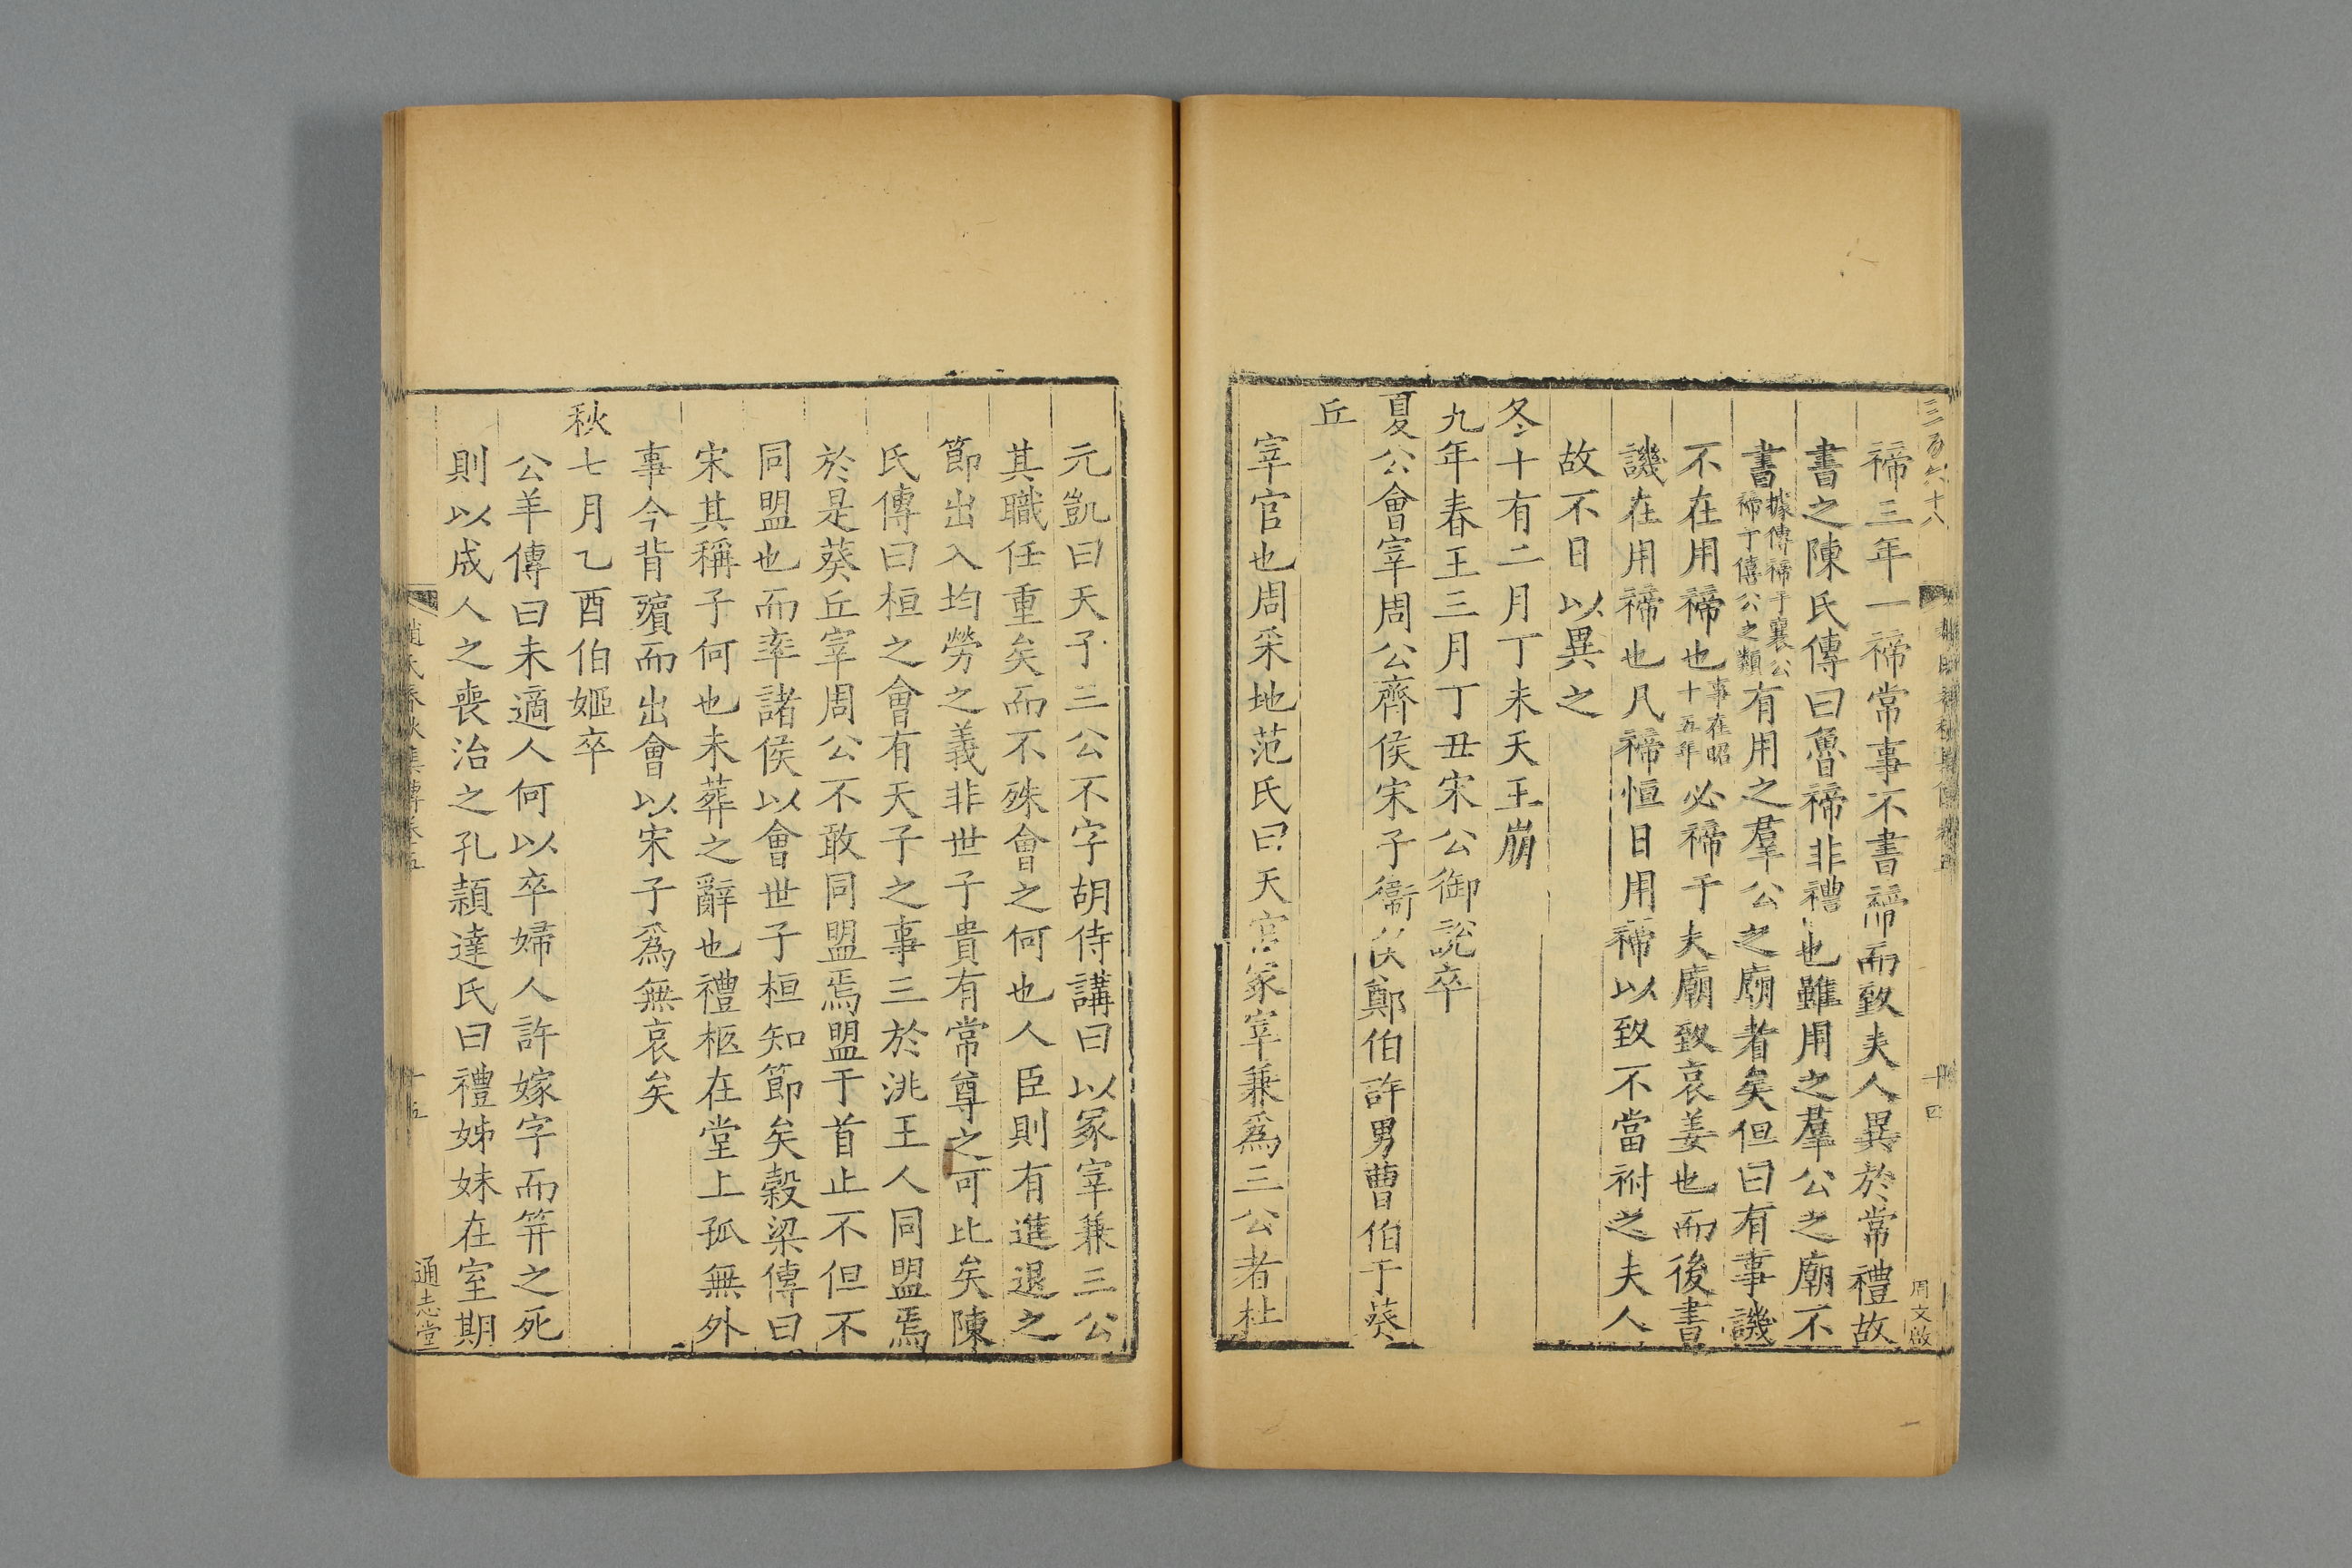 禘三年一禘常事不書禘而致夫人異於常禮故
書之陳氏傳曰魯禘非禮也雖用之羣公之廟不
書據傳禘于襄公禘于僖公之類有用之羣公之廟者矣但曰有事譏
不在用禘也事在昭十五年必禘于夫廟致哀姜也而後書
譏在用禘也凡禘恒日用禘以致不當祔之夫人
故不日以異之
冬十有二月丁未天王崩
九年春王三月丁丑宋公御說卒
夏公會宰周公齊侯宋子衞侯鄭伯許男曹伯于葵
丘
宰官也周采地范氏曰天官冢宰兼爲三公者杜
周文啟
十四
元凱曰天子三公不字胡侍講曰以冢宰兼三公
其職任重矣而不殊會之何也人臣則有進退之
節出入均勞之義非世子貴有常尊之可比矣陳
氏傳曰桓之會有天子之事三於洮王人同盟焉
於是葵丘宰周公不敢同盟焉盟于首止不但不
同盟也而率諸侯以會世子桓知節矣穀梁傳曰
宋其稱子何也未葬之辭也禮柩在堂上孤無外
事今背殯而出會以宋子爲無哀矣
秋七月乙酉伯姬卒
公羊傳曰未適人何以卒婦人許嫁字而笄之死
則以成人之喪治之孔穎達氏曰禮姊妹在室期
趙氏春秋集傳卷五
十五
通志堂